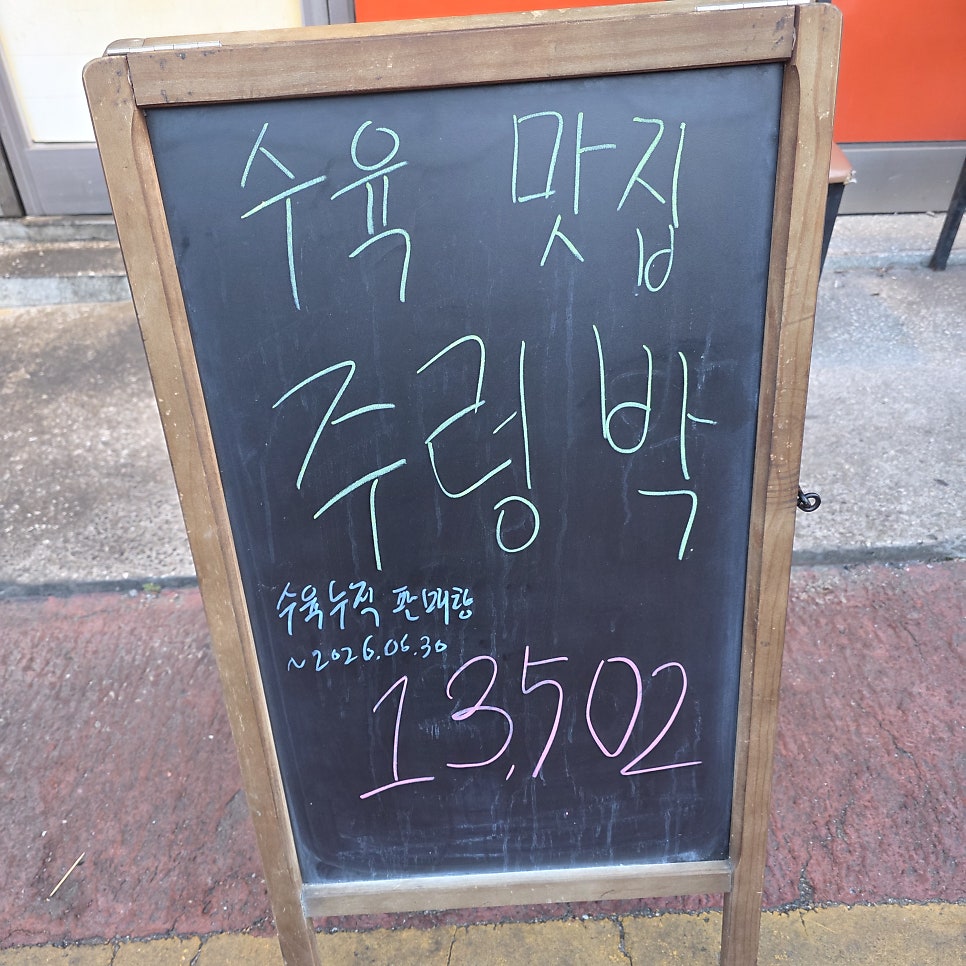 수육 맛집
주령박
수육누적 판매량
~2026.06.30
13,502